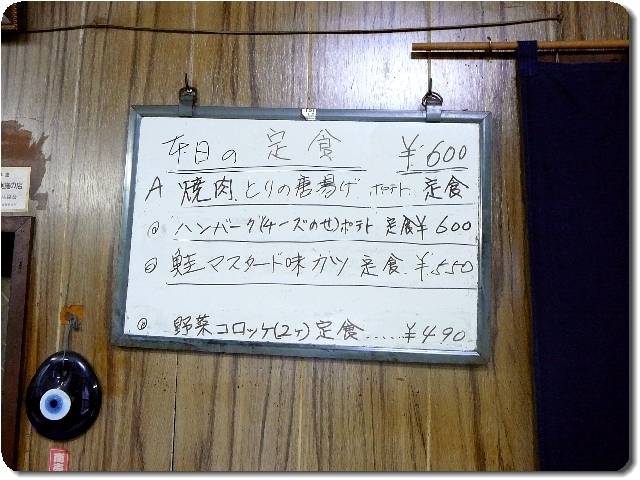 本日の 定食 ¥600
A 焼肉、とりの唐揚げ ポテト 定食
ハンバーグ(チーズのせ)ポテト 定食 ¥600
鮭マスタード味カツ 定食 ¥550
野菜コロッケ(2ケ)定食……¥490